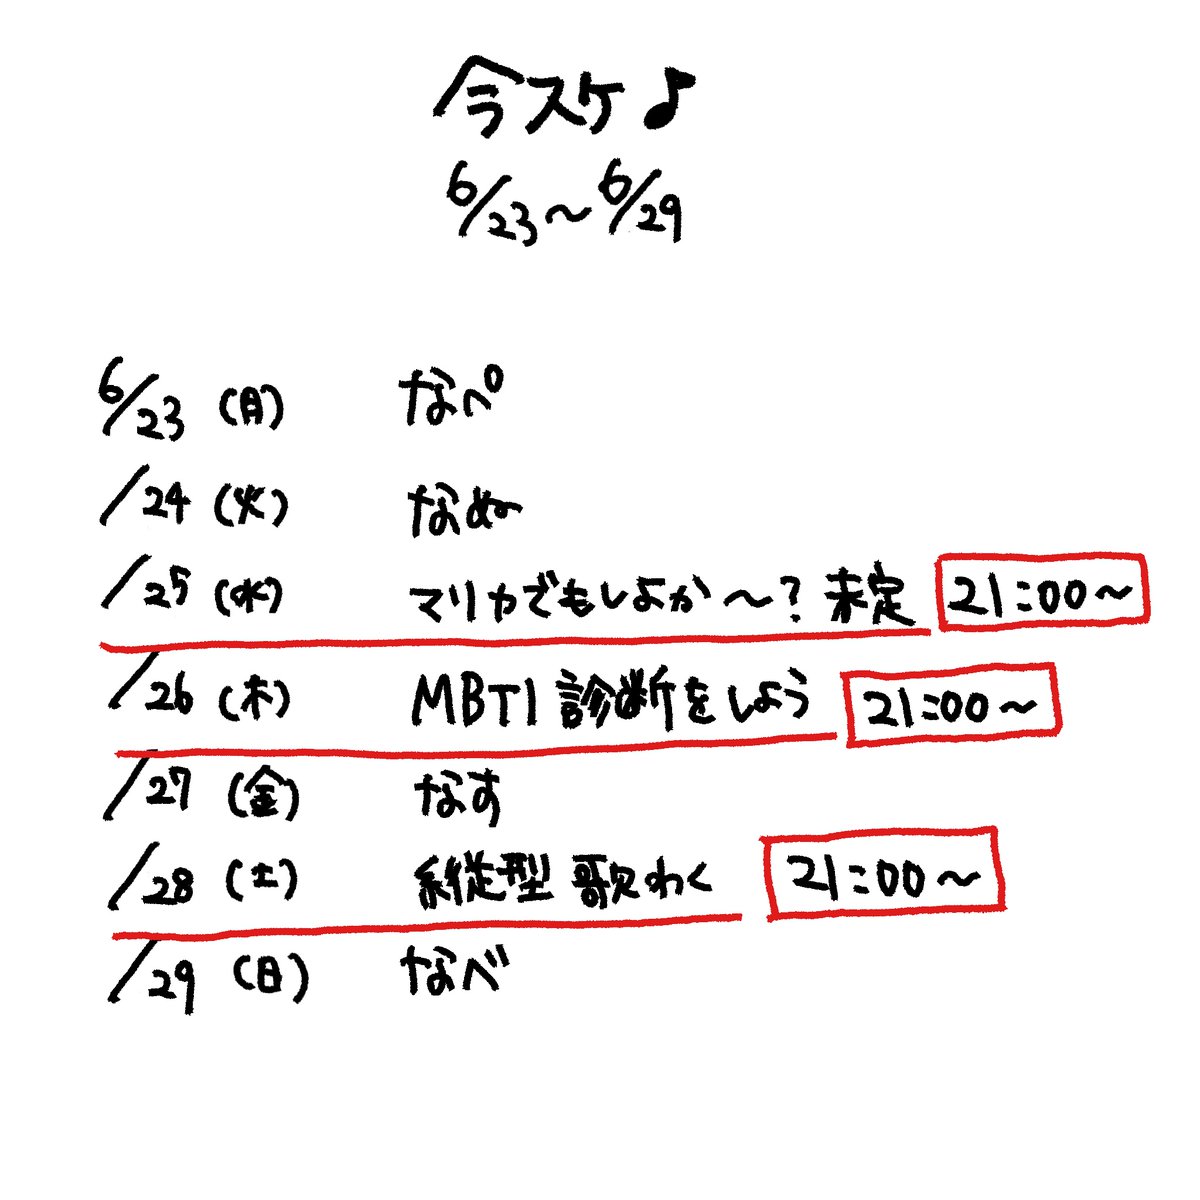 今スケ♪
6/23〜6/29
6/23 (月) なぺ
/24 (火) なぬ
/25 (水) マリカでもしよか〜? 未定 21:00〜
/26 (木) MBTI 診断をしよう 21:00〜
/27 (金) なす
/28 (土) 縦型 歌わく 21:00〜
/29 (日) なべ